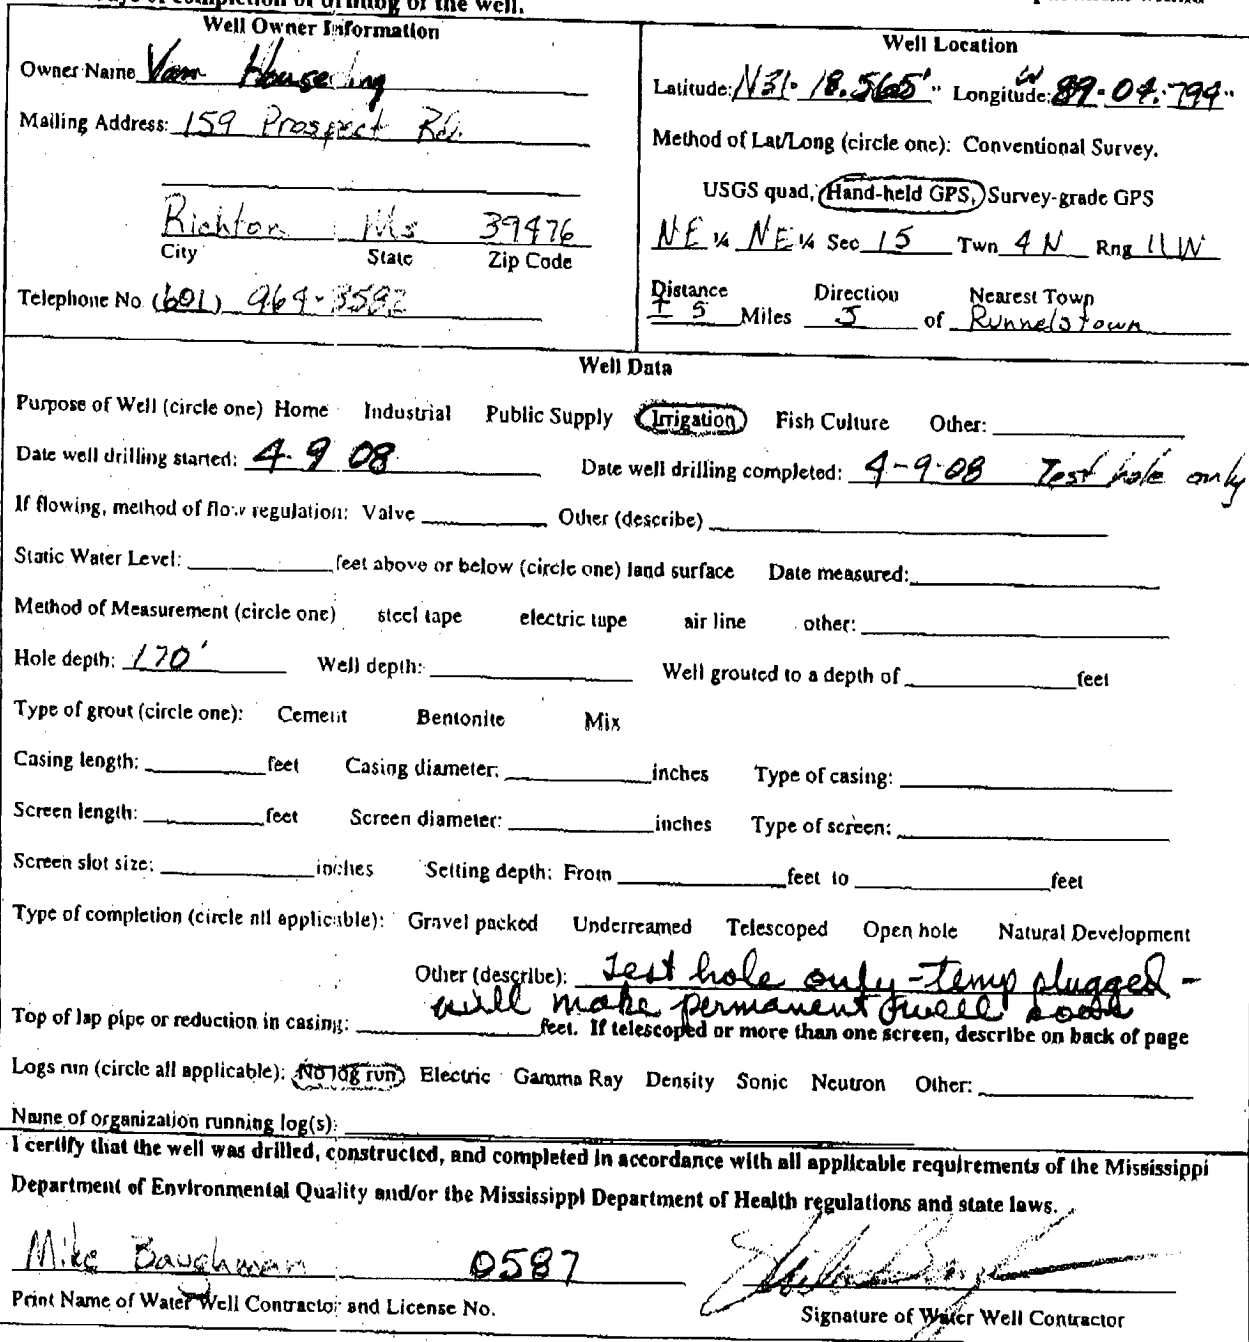 completion of drilling of the well.
Well Owner Information
Owner Name Van
Mailing Address: 159 Prospect Rd.
Richton Ms 39476
City State Zip Code
Telephone No. (601) 964-3582
Well Location
Latitude: N31. 18.565' " Longitude: W 89. 04. 794"
Method of Lat/Long (circle one): Conventional Survey,
USGS quad, Hand-held GPS, Survey-grade GPS
NE ¼ NE ¼ Sec 15 Twn 4 N Rng 11 W
Distance Direction Nearest Town
± 5 Miles S of Runnelstown
Well Data
Purpose of Well (circle one) Home Industrial Public Supply Irrigation Fish Culture Other:
Date well drilling started: 4 9 08 Date well drilling completed: 4-9-08 Test hole only
If flowing, method of flow regulation: Valve Other (describe)
Static Water Level: feet above or below (circle one) land surface Date measured:
Method of Measurement (circle one) steel tape electric tape air line other:
Hole depth: 170' Well depth: Well grouted to a depth of feet
Type of grout (circle one): Cement Bentonite Mix
Casing length: feet Casing diameter: inches Type of casing:
Screen length: feet Screen diameter: inches Type of screen:
Screen slot size: inches Setting depth: From feet to feet
Type of completion (circle all applicable): Gravel packed Underreamed Telescoped Open hole Natural Development
Other (describe): Test hole only - temp plugged -
will make permanent well soon
Top of lap pipe or reduction in casing: feet. If telescoped or more than one screen, describe on back of page
Logs run (circle all applicable): No log run Electric Gamma Ray Density Sonic Neutron Other:
Name of organization running log(s):
I certify that the well was drilled, constructed, and completed in accordance with all applicable requirements of the Mississippi
Department of Environmental Quality and/or the Mississippi Department of Health regulations and state laws.
Mike Baughman 0587
Print Name of Water Well Contractor and License No.
Signature of Water Well Contractor